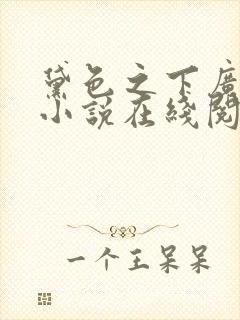 黛色之下广
小说在线阅
一个王呆呆